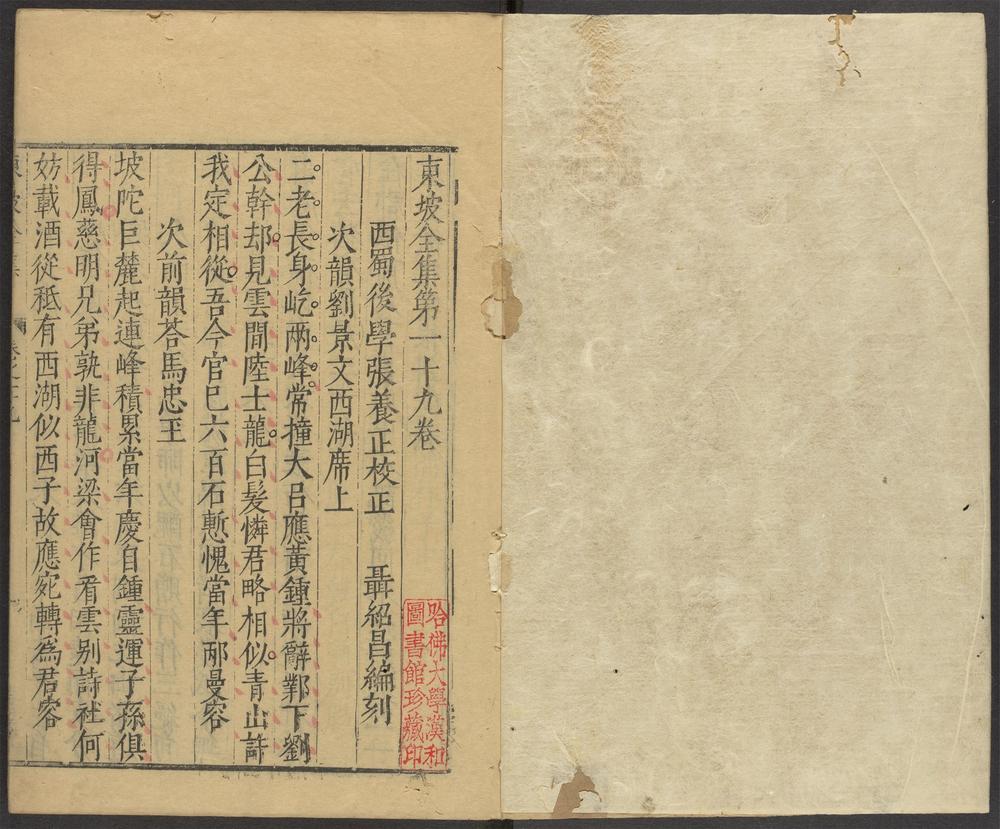 東坡全集第一十九卷
西蜀後學張養正校正　聶紹昌編刻
次韻劉景文西湖席上
二老長身屹兩峰常撞大呂應黃鍾將辭鄴下劉
公幹却見雲間陸士龍白髮憐君略相似青山許
我定相從吾今官已六百石慙愧當年邴曼容
次前韻荅馬忠玉
坡陀巨麓起連峰積累當年慶自鍾靈運子孫俱
得鳳慈明兄弟孰非龍河梁會作看雲别詩社何
妨載酒從秪有西湖似西子故應宛轉爲君容
哈佛大學漢和
圖書館珍藏印